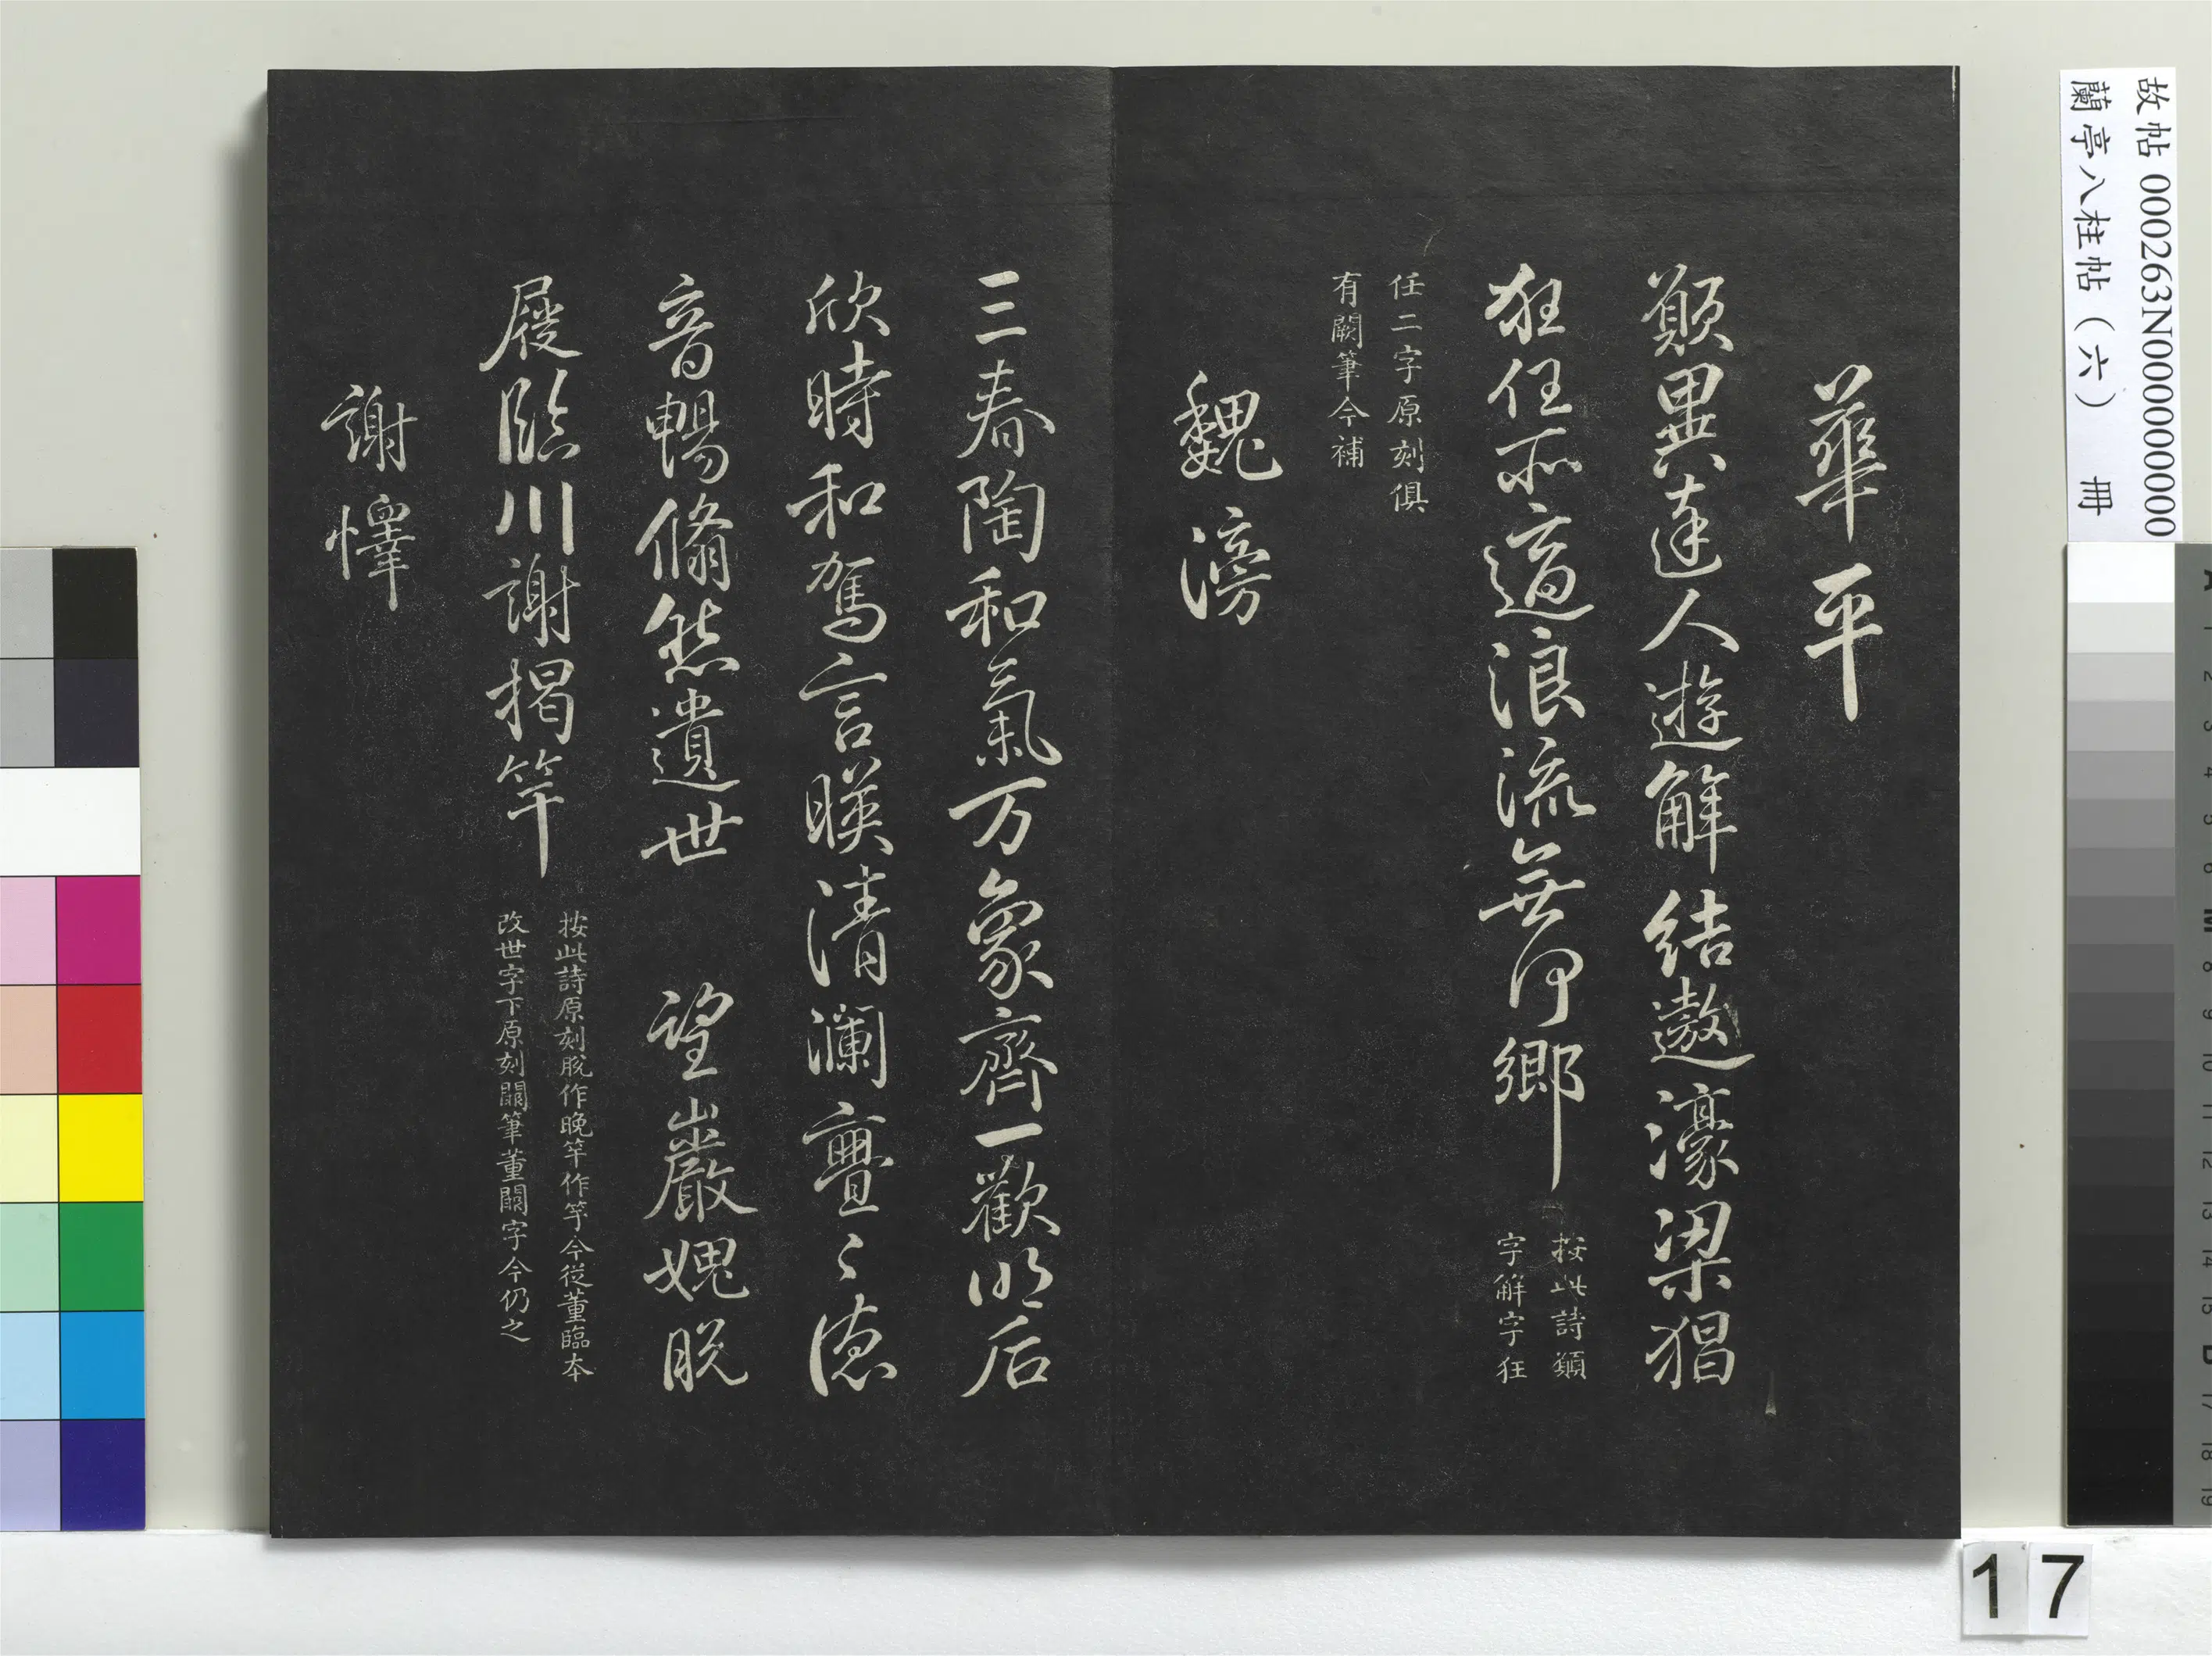 華平
願與達人遊解結遨濠梁狂
狂任所適浪流無何鄉
按此詩願
字解字狂
任二字原刻俱
有闕筆今補
魏滂
三春陶和氣万象齊一歡明后
欣時和駕言暎清瀾亹〻德
音暢翛然遺世 望巖愧脫
屣臨川謝揭竿
按此詩原刻脫作晚竿作竽今從董臨本
改世字下原刻闕筆董闕字今仍之
謝懌
故帖000263N000000000
蘭亭八柱帖（六） 冊
17